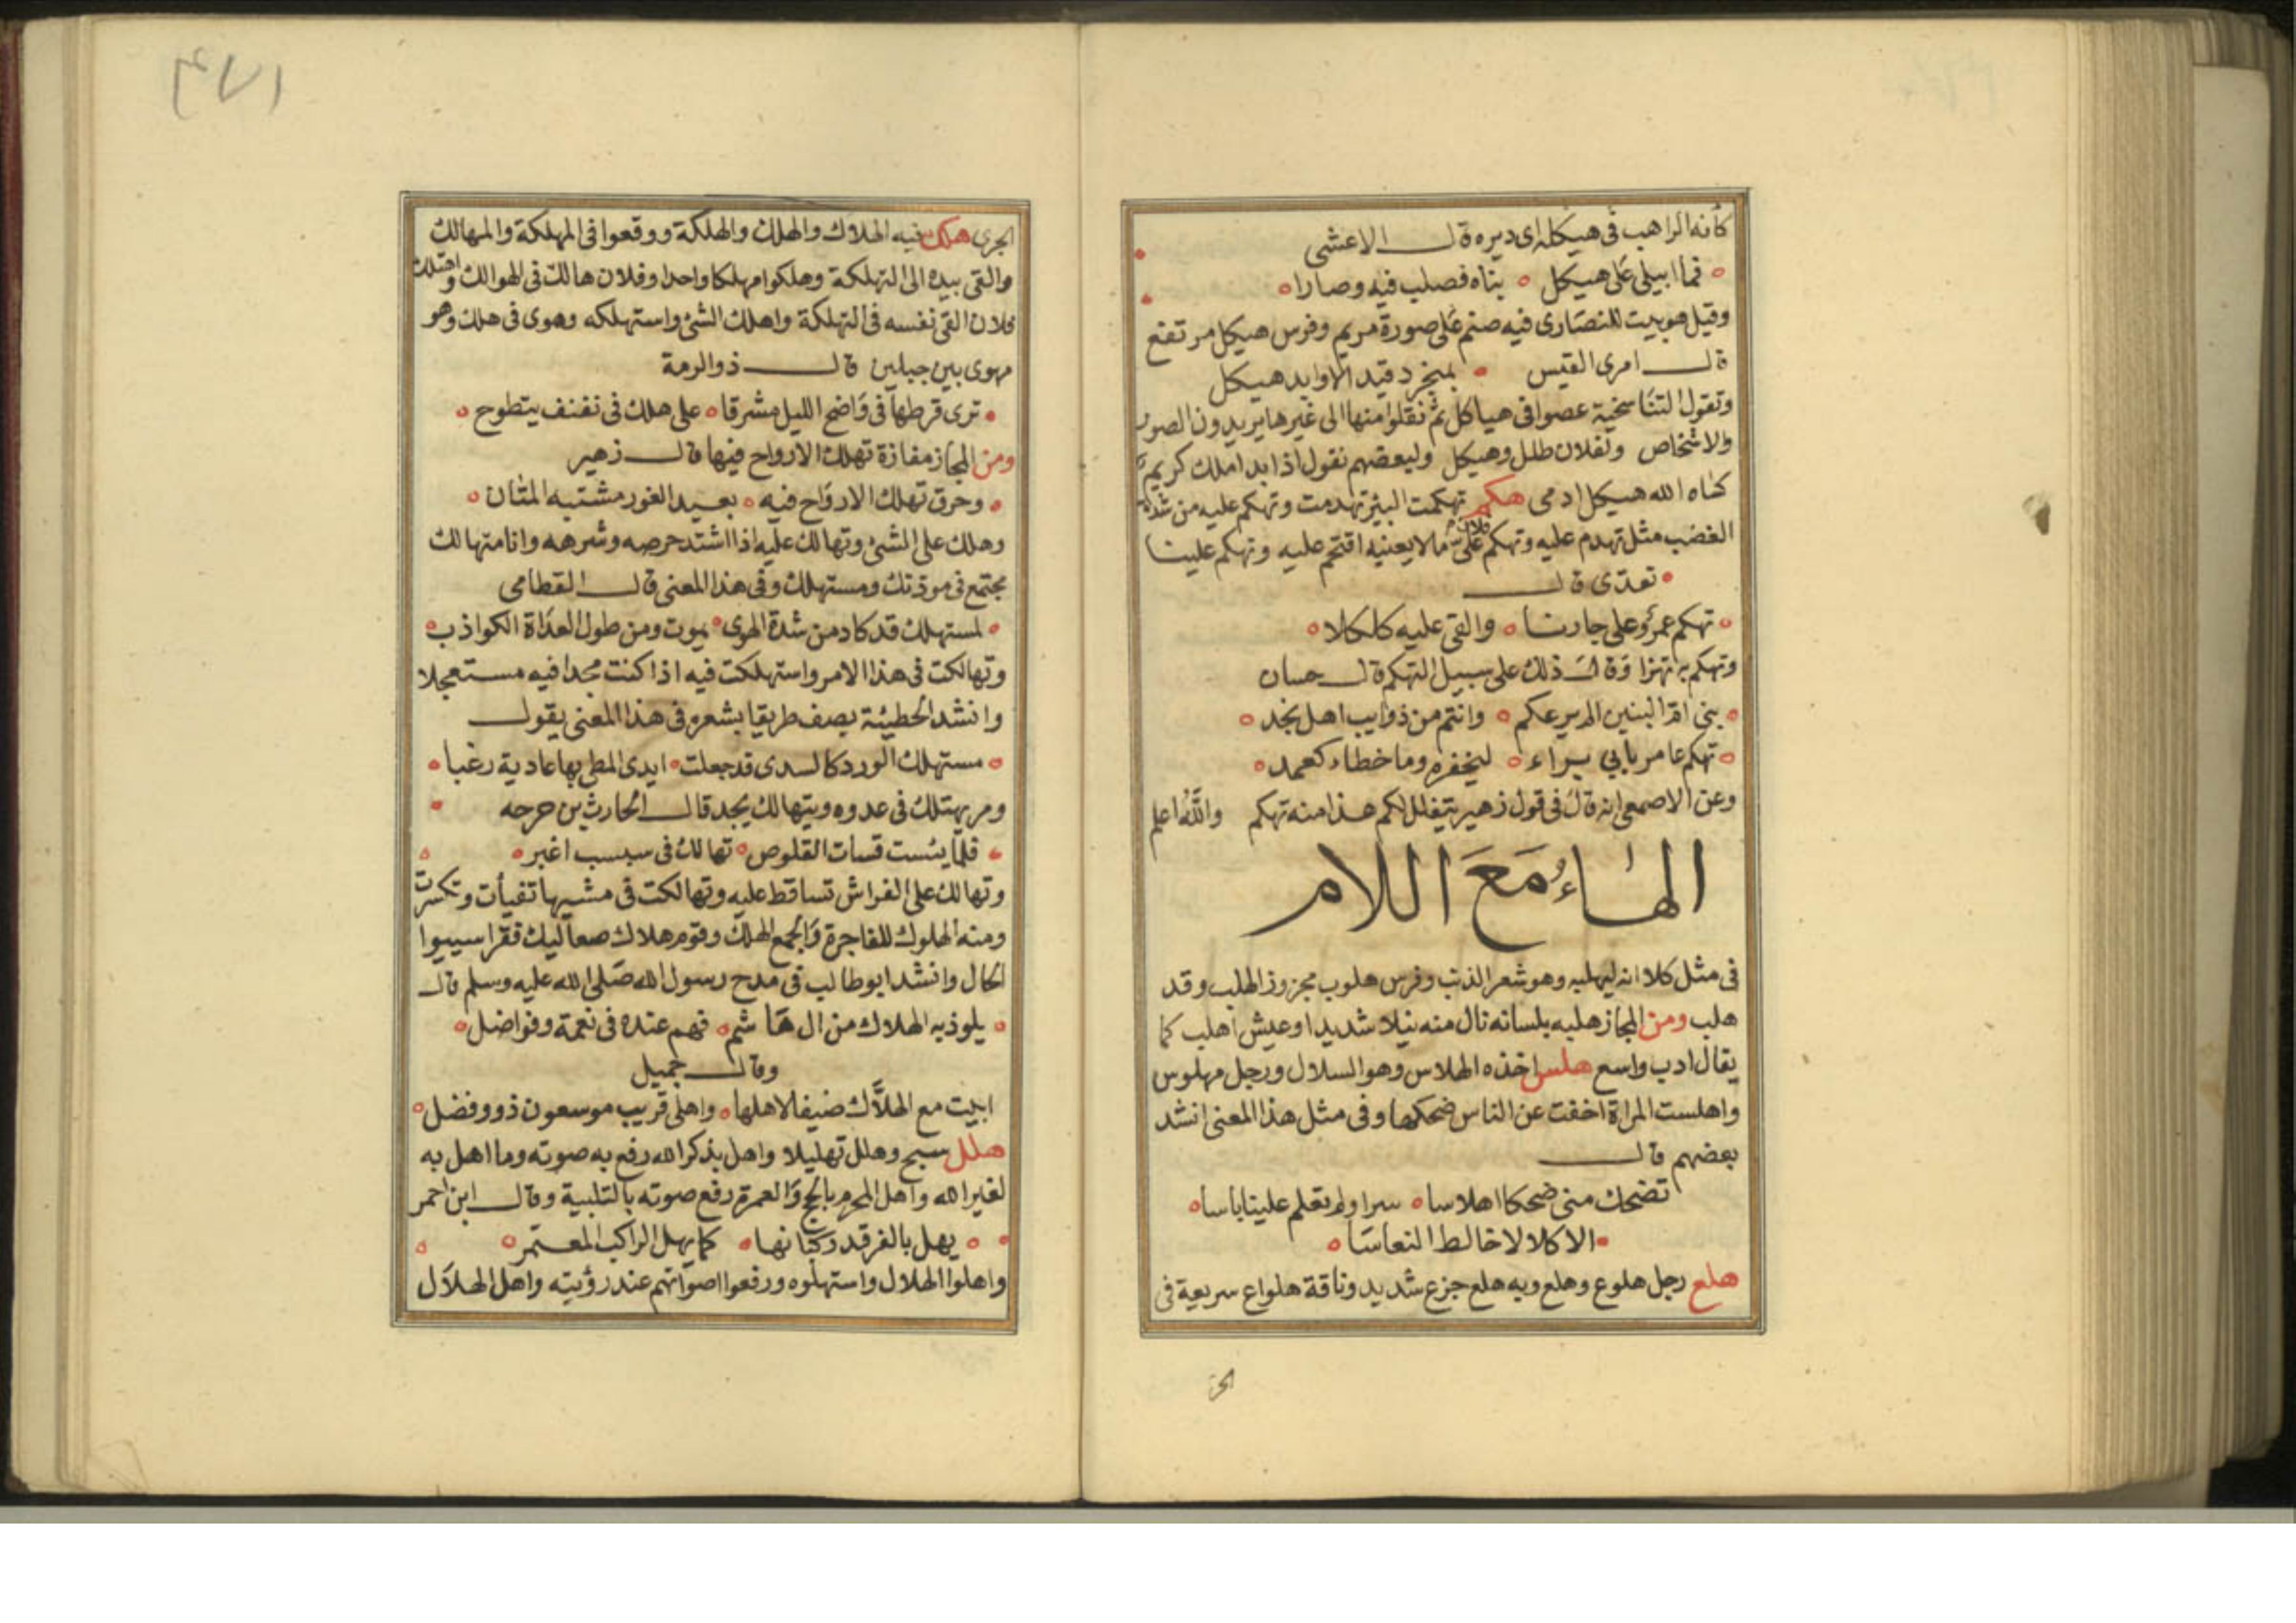 كأنه الراهب في هيكله اى ديره قال الاعشى
فما ايبلى على هيكل بناه فصلب فيه وصارا
وقيل هو بيت للنصارى فيه صنم على صورة مريم وفرس هيكل مرتفع
قال امرى القيس بمنجرد قيد الاوابد هيكل
وتقول التناسخية عصوا فى هياكل ثم نقلوا منها الى غيرها يريدون الصور
والاشخاص ولفلان طلل وهيكل ولبعضهم نقول اذا بدا ملك كريم
كساه الله هيكل ادمى هكم تهكمت البئر تهدمت وتهكم عليه من شدة
الغضب مثل تهدم عليه وتهكم فلان على ما لا يعنيه اقتحم عليه وتهكم علينا
تعدى قال
تهكم عمرو على جارنا والقى عليه كلكلا
وتهكم به تهزا وقال ذلك على سبيل التهكم قال حسان
بنى ام البنين الم يرعكم وانتم من ذوايب اهل نجد
تهكم عامر بابي براء ليخفره وما خطاء كعمد
وعن الاصمعى انه قال فى قول زهير بتغلل لكم هذا منه تهكم والله اعلم
الهاء مع اللام
فى مثل كلا انه ليهلبه وهو شعر الذنب وفرس هلوب مجزوز الهلب وقد
هلب ومن المجاز هلبه بلسانه نال منه نيلا شديدا وعيش اهلب كما
يقال ادب واسع هلس اخذه الهلاس وهو السلال ورجل مهلوس
واهلست المراة اخفت عن الناس ضحكها وفى مثل هذا المعنى انشد
بعضهم قال
تضحك منى ضحكا اهلاسا سرا ولم تعلم علينا باسا
الا كلالا خالط النعاسا
هلع رجل هلوع وهلع وبه هلع جزع شديد وناقة هلواع سريعة فى
الجرى
٤٧١
الجرى هلك فيه الهلاك والهلك والهلكة ووقعوا فى المهلكة والمهالك
والقى بيده الى التهلكة وهلكوا مهلكا واحدا وفلان هالك فى الهوالك واهتلك
فلان القى نفسه فى التهلكة واهلك الشئ واستهلكه وهوى فى هلك وهو
مهوى بين جبلين قال ذو الرمة
ترى قرطها فى واضح الليل مشرقا على هلك فى نفنف يتطوح
ومن المجاز مفازة تهلك الارواح فيها قال زهير
وخرق تهلك الارواح فيه بعيد الغور مشتبه المتان
وهلك على الشئ وتهالك عليه اذا اشتد حرصه وشرهه وانا متهالك
مجتمع فى مودتك ومستهلك وفى هذا المعنى قال القطامى
لمستهلك قد كاد من شدة الهوى يموت ومن طول العداة الكواذب
وتهالكت فى هذا الامر واستهلكت فيه اذا كنت مجدا فيه مستعجلا
وانشد الحطيئة يصف طريقا بشعره فى هذا المعنى يقول
مستهلك الورد كالسدى قد جعلت ايدى المطى بها عادية رغبا
ومر يهتلك فى عدوه ويتهالك يجد قال الحارث بن حرجه
فلما يئست قسات القلوص تهالك فى سبسب اغبر
وتهالك على الفراش تساقط عليه وتهالكت فى مشيها تفيأت وتكسرت
ومنه الهلوك للفاجرة والجمع الهلك وقوم هلاك صعاليك فقرا سيبوا
الحال وانشد ابو طالب فى مدح رسول الله صلى الله عليه وسلم قال
يلوذ به الهلاك من ال هاشم فهم عنده فى نعمة وفواضل
وقال جميل
ابيت مع الهلاك ضيفا لاهلها واهلى قريب موسعون ذوو فضل
هلل سبح وهلل تهليلا واهل بذكر الله رفع به صوته وما اهل به
لغير الله واهل المحرم بالحج والعمرة رفع صوته بالتلبية وقال ابن احمر
يهل بالفرقد ركبانها كما يهل الراكب المعتمر
واهلوا الهلال واستهلوه ورفعوا اصواتهم عند رؤيته واهل الهلال